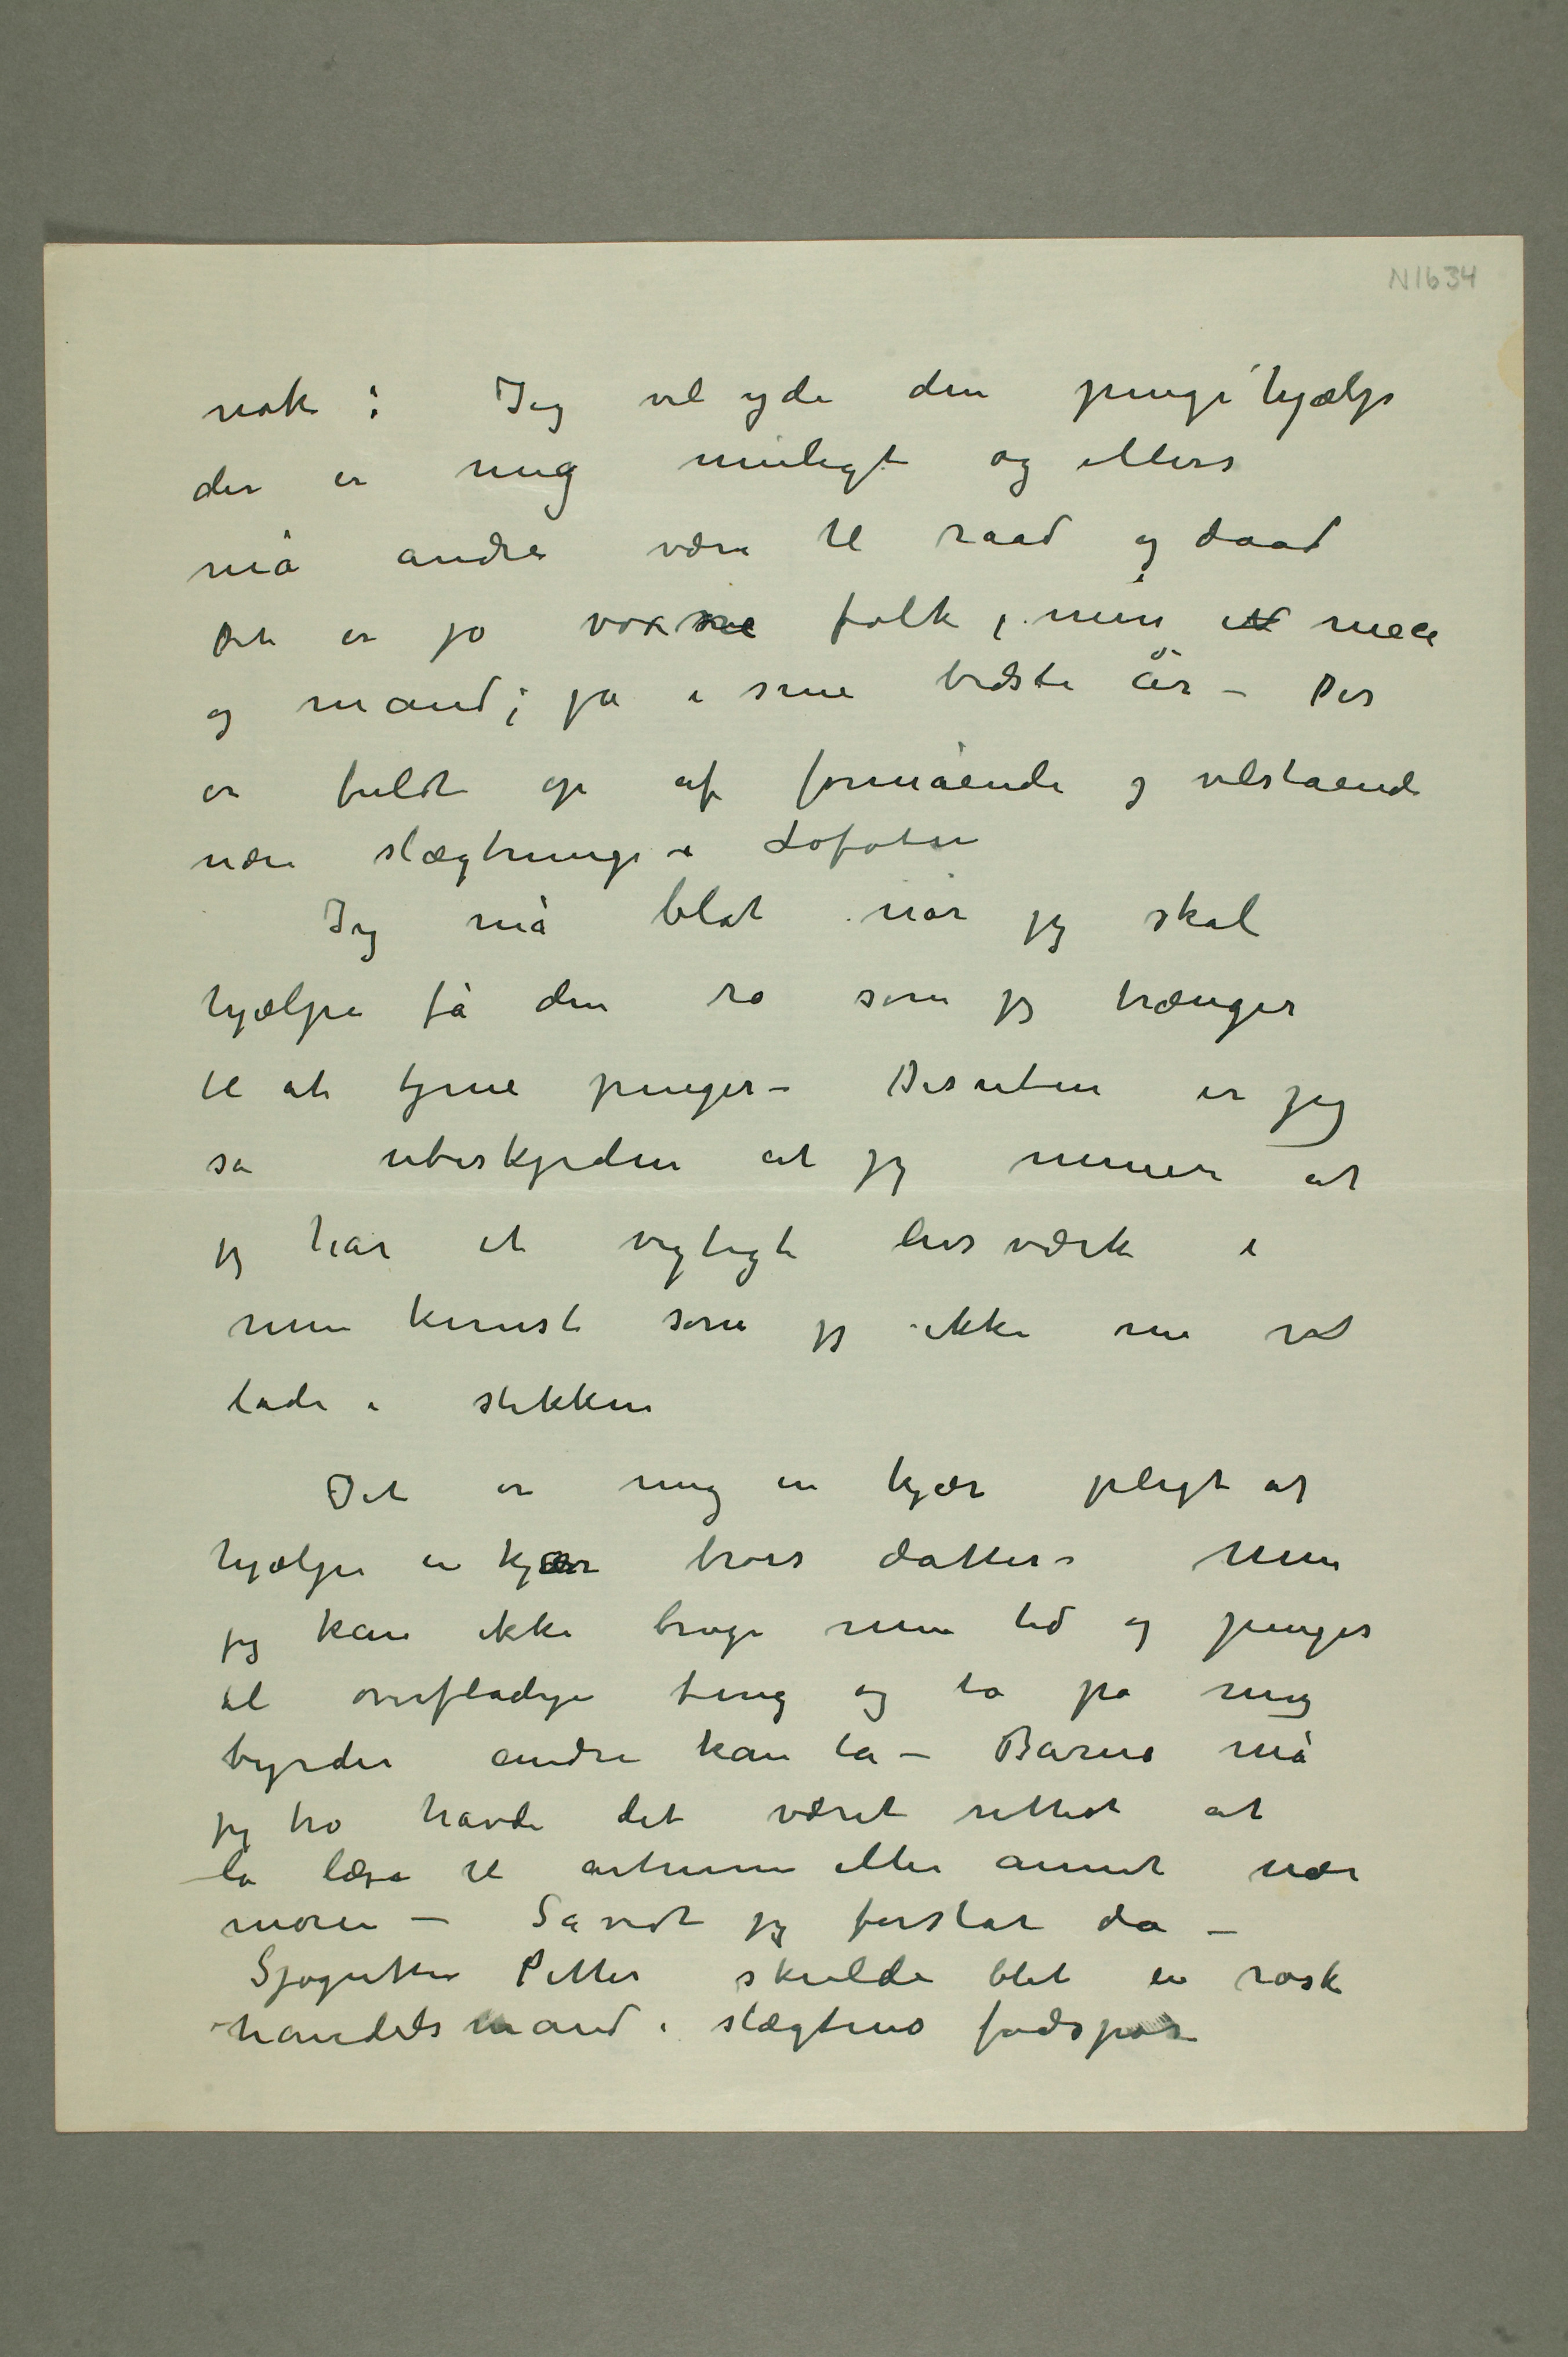 N1634
nok: Jeg vil yde den pengehjælp
der er mig muligt og ellers
må andre være til raad og daad
Det er jo voxne folk, men
og mand; ja i sine bedste år – Der
er fuldt op af formående og velstaaende
nære slægtninge i Lofoten
Jeg må blot når jeg skal
hjælpe få den ro som jeg trænger
til at tjene penger – Desuten er jeg
så ubeskjeden at jeg mener at
jeg har et vigtigt livsværk i
min kunst som jeg ikke må
lade i stikken
Det er mig en kjær pligt at
hjælpe en kjær brors datter – Men
jeg kan ikke bruge min tid og penger
til overflødige ting og ta på mig
byrder andre kan ta – Barna må
jeg tro havde det været rettest at
la læse til artium eller annet nær
moren – Såvidt jeg forstår da –
Sjøgutten Petter skulde blet en rask
handelsmand i slægtens fodspor